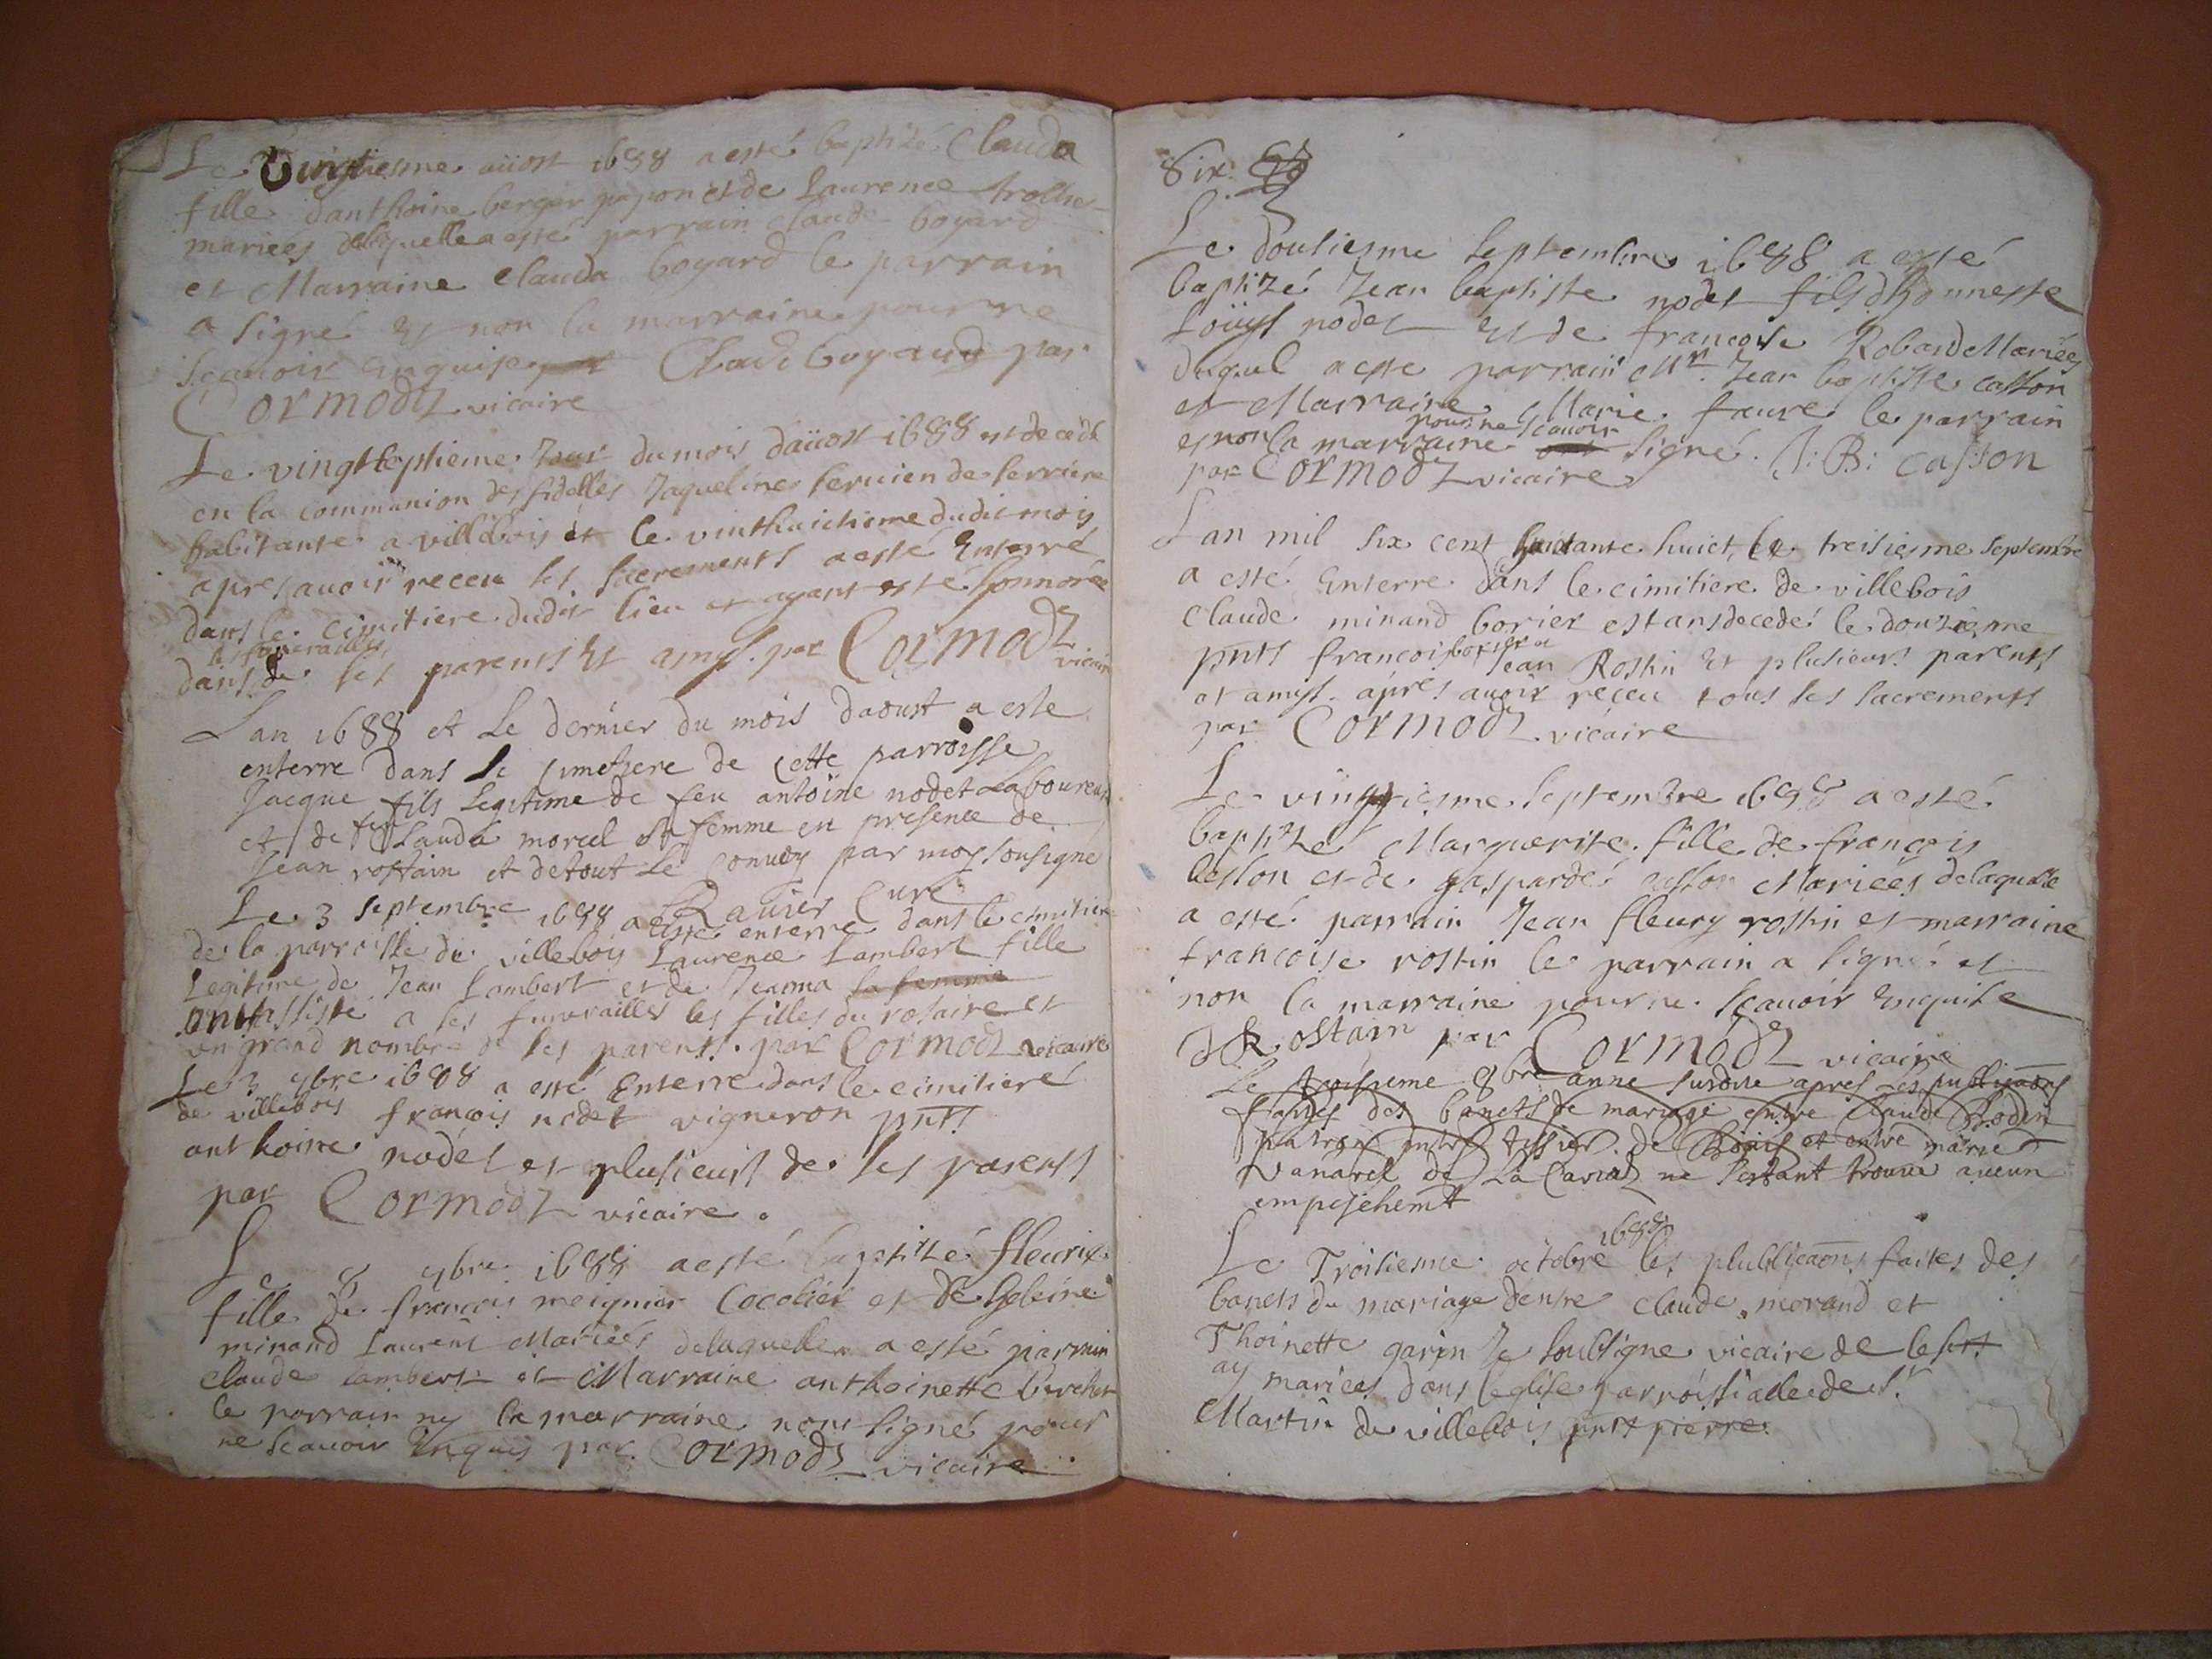 Le Vingtiesme aüost 1688 a esté baptizé Clauda
fille danthoine berger papon et de Laurence trollie
mariées delaquelle a esté parrain claude boyard
et Marraine Clauda boyard le parrain
a signé Et non la marraine pour ne
scauoir Enquise Claude boyaud par
Cormodz vicaire
Le vingtseptieme Jour du mois daüost 1688 est decedé
en la communion des fidelles Jaqueline seruien de serriere
habitante a villebois et le vinthuictieme dudit mois
apres auoir receu les sacrements a esté Enterré
dans le cimitiere dudit lieu et ayant esté honnorée
les funerailles
dans de ses parents Et amys. par Cormodz vicaire
Lan 1688 et Le dernier du mois daoust a este
enterre dans le cimethere de cette parroisse
Jacque fils Legitime de feu antoine nodet Laboureur
et de feu Clauda morcel sa femme en presence de
Jean rostain et de tout Le Convoy par moy sousigne
Rauier Curé
Le 3 septembre 1688 a esté enterré dans le cimitiere
de la parroisse de villebois Laurence Lambert fille
Legitime de Jean Lambert et de Jeanna sa femme
ont assisté a ses funerailles les filles du rosaire et
un grand nombre de ses parents. par Cormodz vicaire
Le 3 7bre 1688 a esté Enterre dans le cimitiere
de villebois francois nodet vigneron pnts
anthoine nodet et plusieurs de ses parents
par Cormodz vicaire.
Le 8 7bre 1688 a esté baptizé fleurie
fille de francois meignier Cocolier et de heleine
minand Laurent Mariées delaquelle a esté parrain
claude Lambert et Marraine anthoinette
le parrain ny la marraine nont signé pour
ne scauoir Enquis par Cormodz vicaire
Six
Le douzieme septembre 1688 a esté
baptizé Jean baptiste nodet fils dhonneste
Loüys nodet et de francoise Robard Mariées
duquel a esté parrain Mr. Jean baptiste casson
et Marraine Marie faure le parrain
pour ne scauoir
et non la marraine ont signé. J: B: casson
par Cormodz vicaire
Lan mil six cent huictante huict, le treisiesme septembre
a esté Enterre dans le cimitiere de villebois
Claude minand borier estans decedé le douzieme
pnts francois borier et Jean Rostin Et plusieurs parents
et amys. aprés auoir receu tous les sacrements
par Cormodz vicaire
Le vingtiesme septembre 1688 a esté
baptizé Marguerite fille de francois
beslon et de gasparde casson Mariées delaquelle
a esté parrain Jean fleury rostin et marraine
francoise rostin le parrain a signé et
non la marraine pour ne scauoir Enquise
Rostain par Cormodz vicaire
Le troisieme 8bre anne susdite apres les publicaons
faittes des bancts de mariage entre Claude Rodet
patron tissier de et entre marie
Vanarel de La ne sestant trouué aucun
empeschemt
1688
Le Troisiesme octobre les plublicaons faites des
bancts du mariage dentre claude morand et
Thoinette garin Je soubsigne vicaire de
ay mariees dans leglise parroissialle de St
Martin de villebois pnts pierre